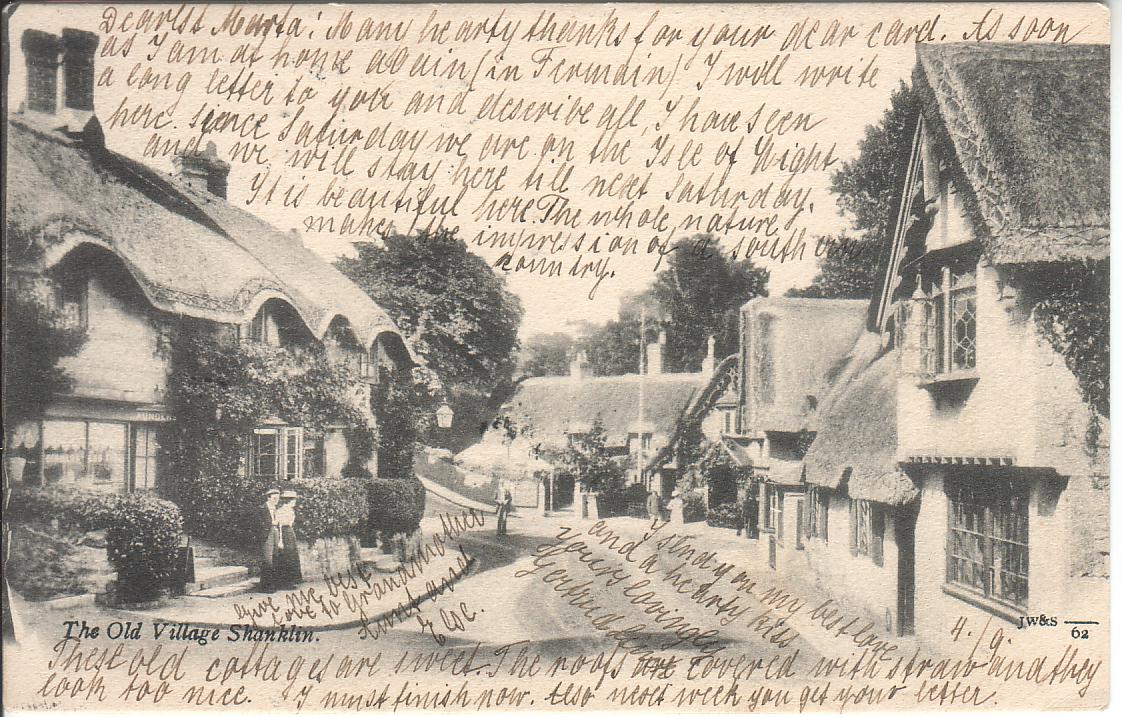 Dearest Marta! Many hearty thanks for your dear card. As soon
as I am at home again (in Firmain) I will write
a long letter to you and describe all, I have seen
here. sience Saturday we are on the Isle of Wight
and we will stay here till next Saturday.
It is beautiful here. The whole nature
makes the impression of a southern
country.
Give my best
love to Grandmother
Aunt and
Etc.
I send you my best love
and a hearty kiss
Yours lovingly
The Old Village Shanklin.
JW&S
62
4./9.
These old cottages are sweet. The roofs are covered with straw and they
look too nice. I must finish now. Also next week you get your letter.